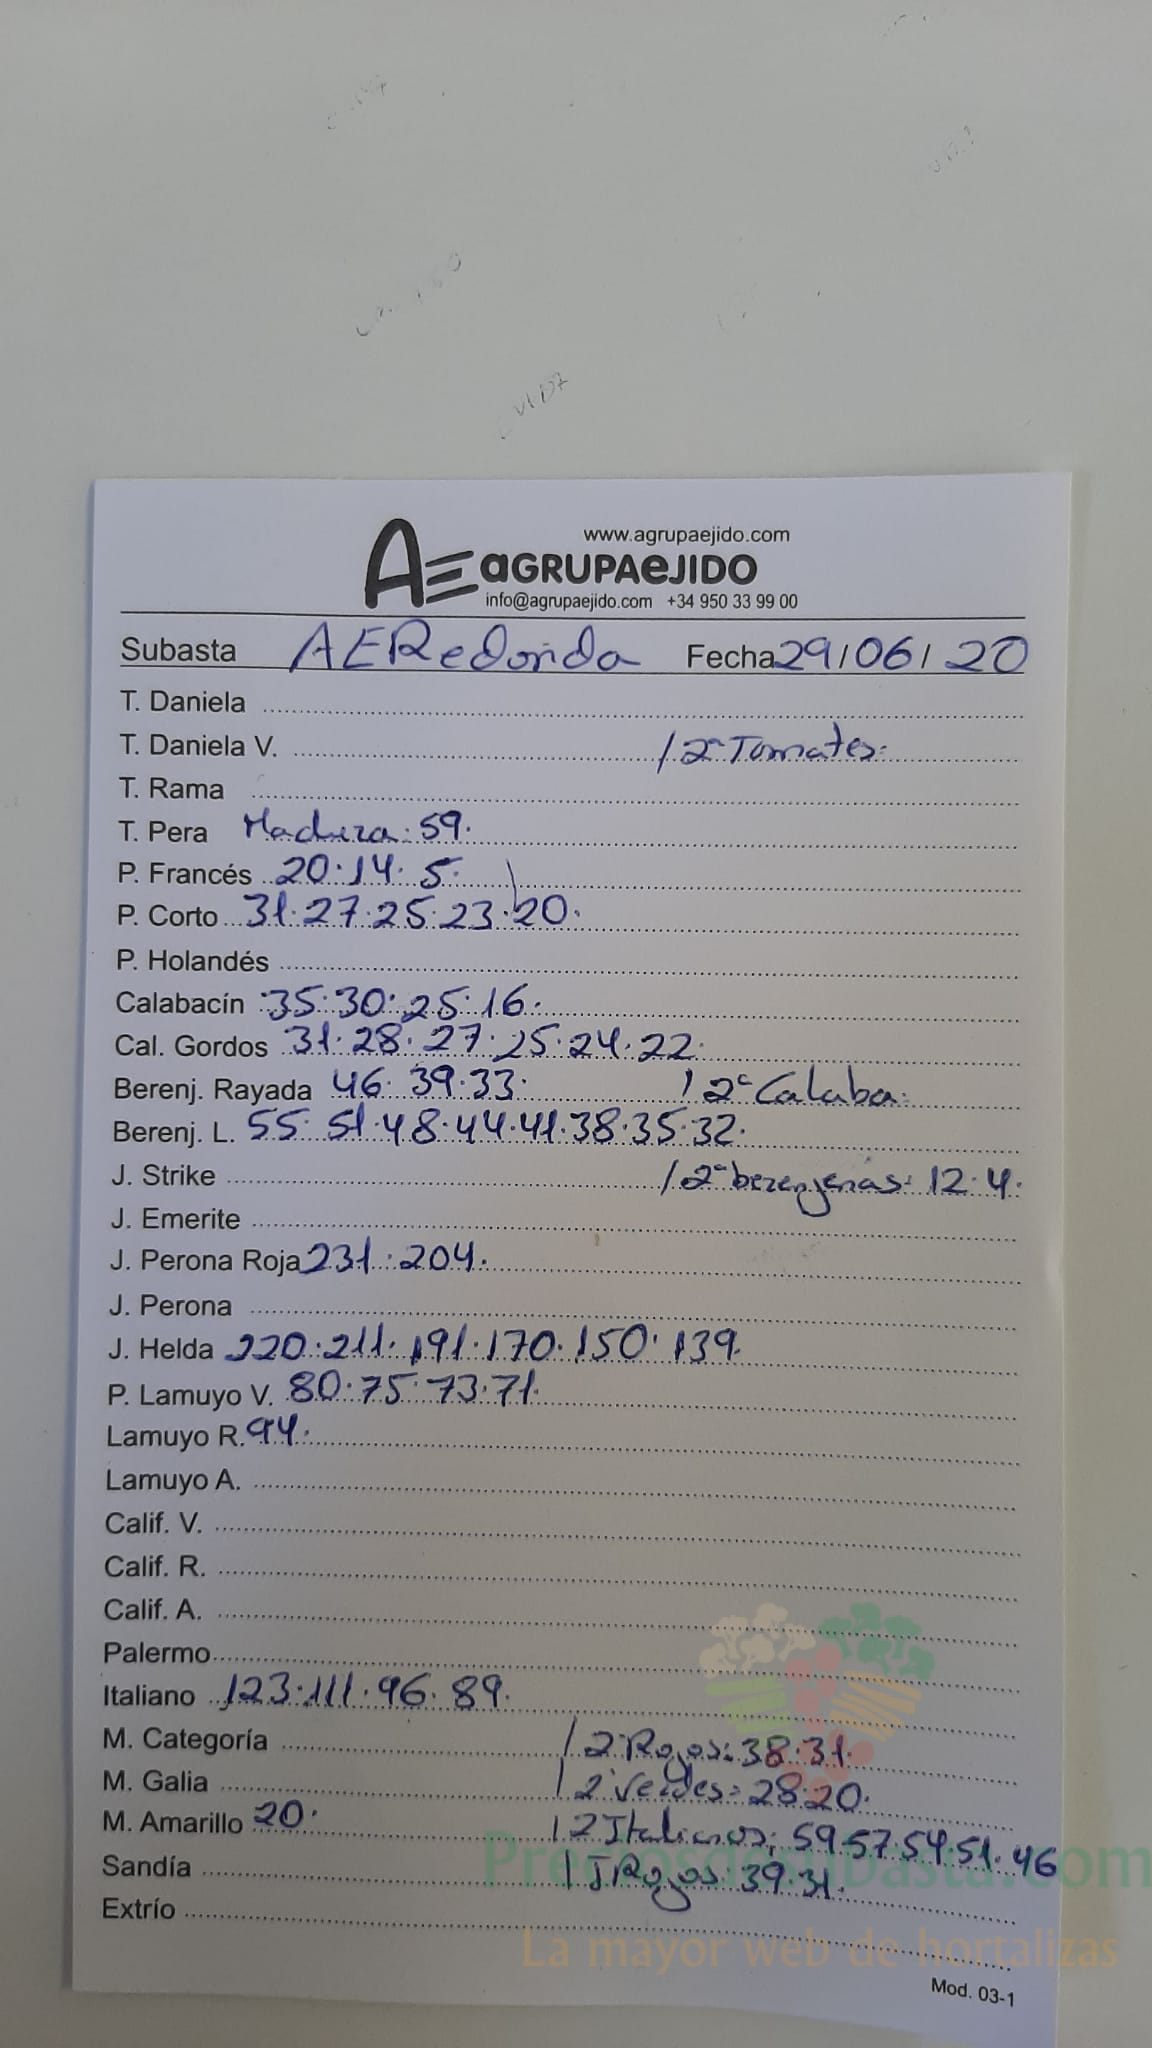 www.agrupaejido.com
AE aGRUPAeJIDO
info@agrupaejido.com +34 950 33 99 00
Subasta AERedonda Fecha 29/06/20
T. Daniela
T. Daniela V. / 2ª Tomates:
T. Rama
T. Pera Madura: 59.
P. Francés 20. 14. 5.
P. Corto 31. 27. 25. 23. 20.
P. Holandés
Calabacín 35. 30. 25. 16.
Cal. Gordos 31. 28. 27. 25. 24. 22.
Berenj. Rayada 46. 39. 33. / 2ª Calaba:
Berenj. L. 55. 51. 48. 44. 41. 38. 35. 32.
J. Strike / 2ª berenjenas: 12. 4.
J. Emerite
J. Perona Roja 231. 204.
J. Perona
J. Helda 220. 211. 191. 170. 150. 139.
P. Lamuyo V. 80. 75. 73. 71.
Lamuyo R. 94.
Lamuyo A.
Calif. V.
Calif. R.
Calif. A.
Palermo
Italiano 123. 111. 96. 89.
M. Categoría / 2ª Rojos: 38. 31.
M. Galia / 2ª Verdes: 28. 20.
M. Amarillo 20. / 2 Italianos: 59. 57. 54. 51. 46
Sandía / J Rojos: 39. 31.
Extrío
Preciosdesubasta.com
La mayor web de hortalizas
Mod. 03-1